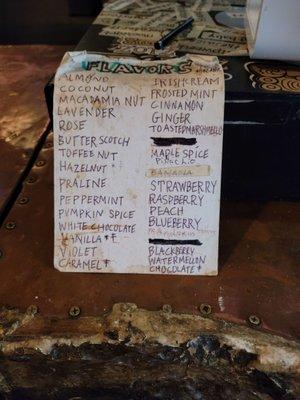 FLAVORS
ALMOND
COCONUT
MACADAMIA NUT
LAVENDER
ROSE
BUTTERSCOTCH
TOFFEE NUT
HAZELNUT
PRALINE
PEPPERMINT
PUMPKIN SPICE
WHITE CHOCOLATE
VANILLA*
VIOLET
CARAMEL*
IRISH CREAM
FROSTED MINT
CINNAMON
GINGER
TOASTED MARSHMELLO
MAPLE SPICE
BANANA
STRAWBERRY
RASPBERRY
PEACH
BLUEBERRY
BLACKBERRY
WATERMELON
CHOCOLATE*